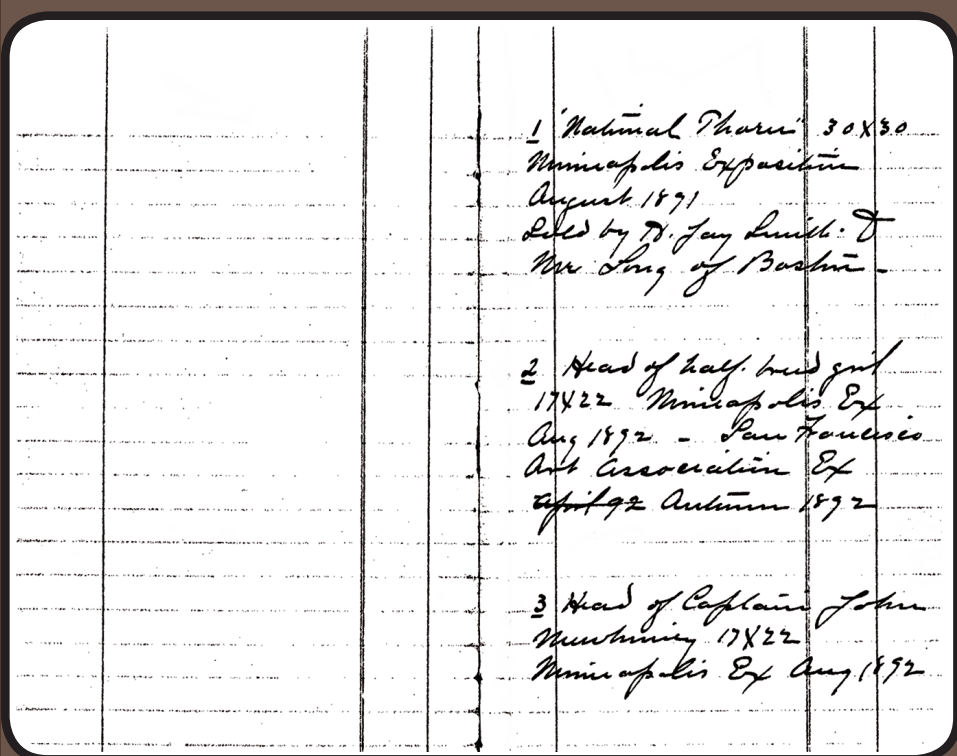 1 "National Thorn" 30X30
Minneapolis Exposition
August 1891
Sold by H. Jay Smith. T
Mr Long of Boston -
2 Head of half. breed girl
17X22 Minneapolis Ex
Aug 1892 - San Francisco
Art Association Ex
April 92 Autumn 1892
3 Head of Captain John
Mewhinney 17X22
Minneapolis Ex Aug 1892